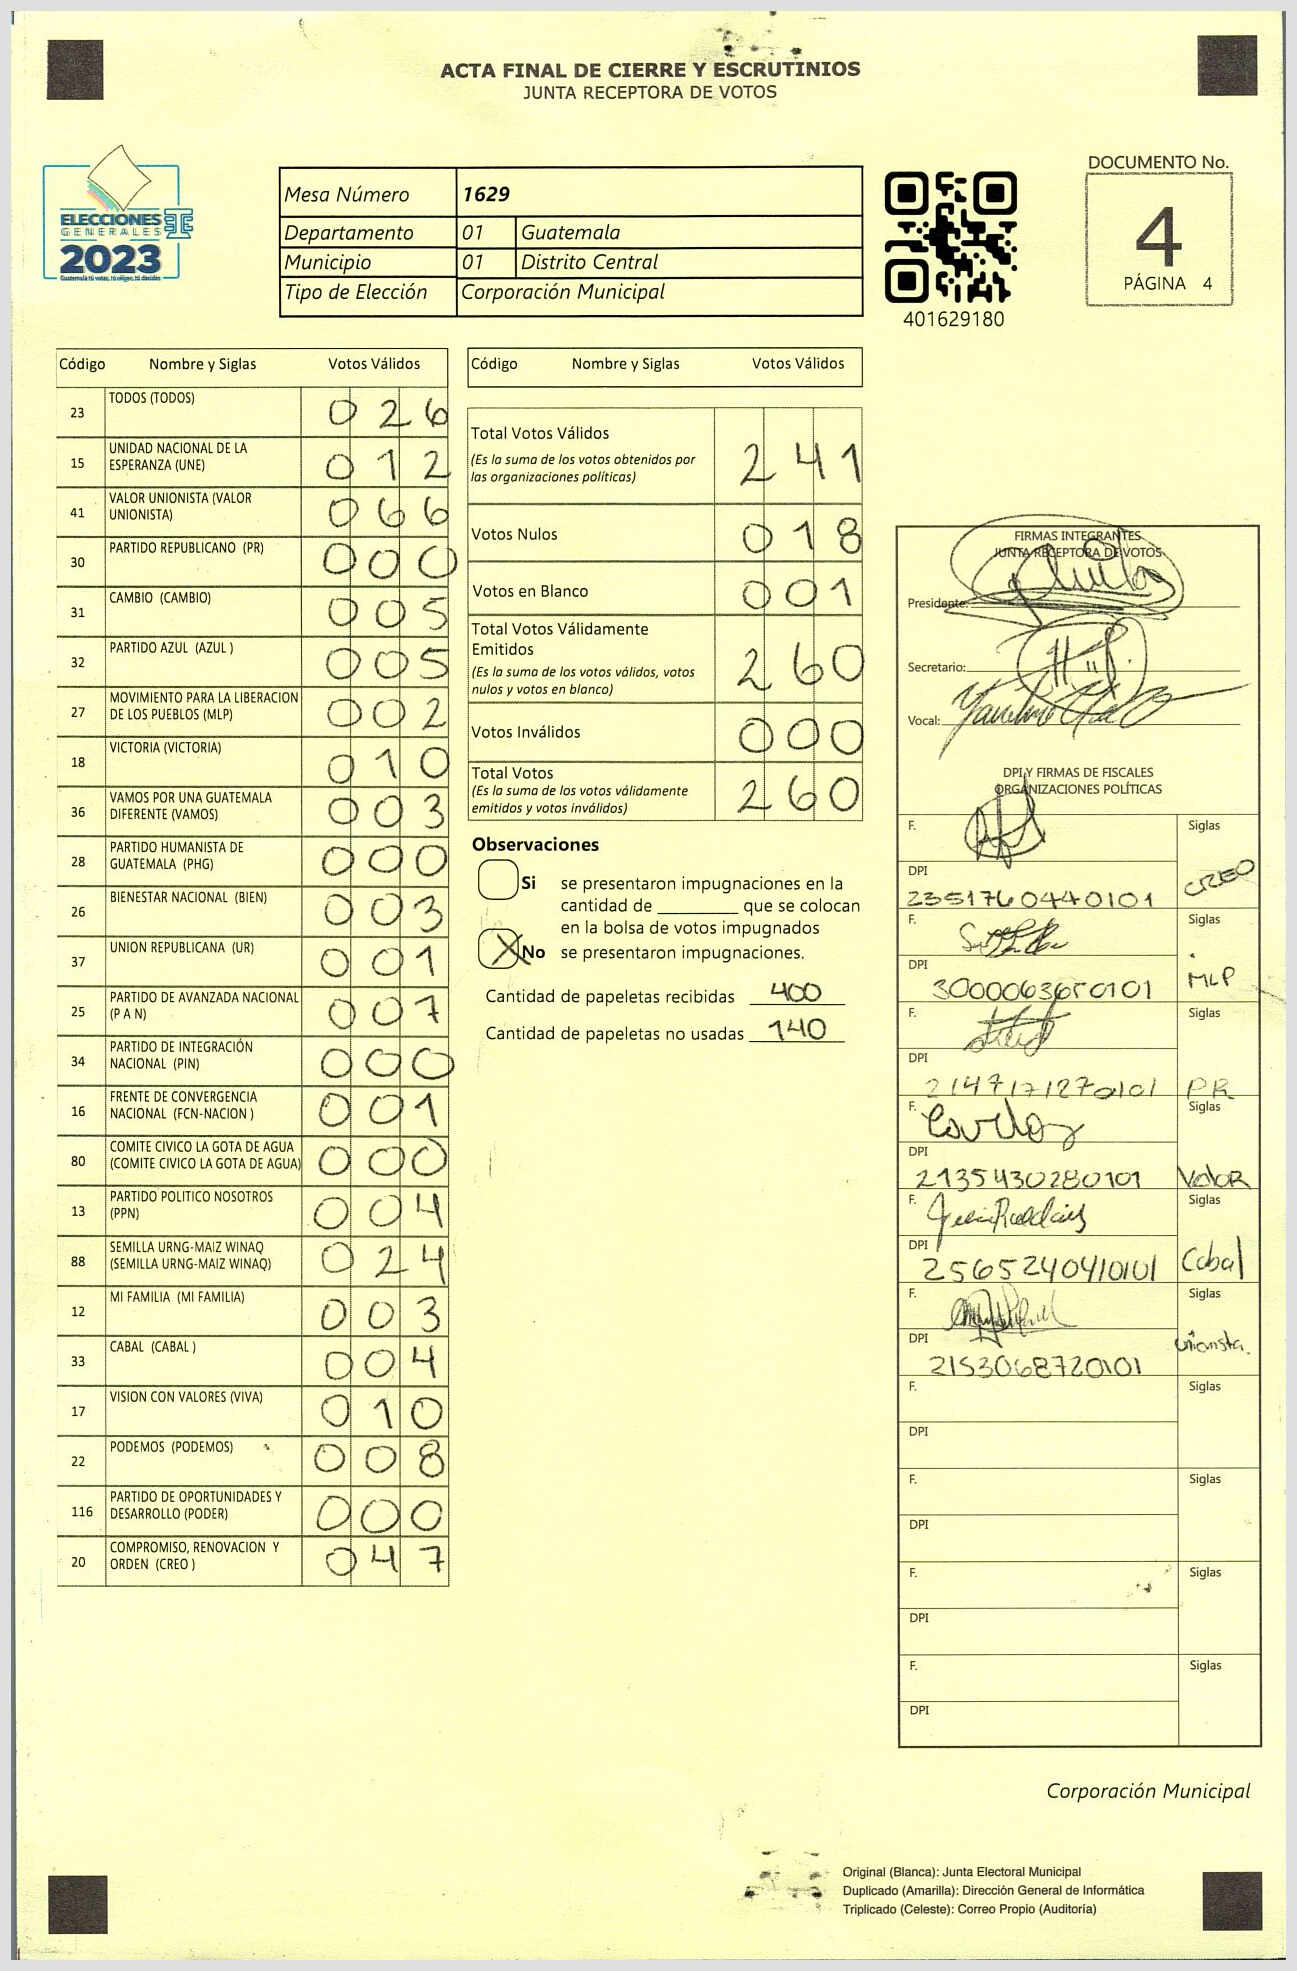 ACTA FINAL DE CIERRE Y ESCRUTINIOS
JUNTA RECEPTORA DE VOTOS
ELECCIONES
GENERALES
2023
Guatemala tú votas, tú eliges, tú decides
Mesa Número 1629
Departamento 01 Guatemala
Municipio 01 Distrito Central
Tipo de Elección Corporación Municipal
401629180
DOCUMENTO No.
4
PÁGINA 4
Código Nombre y Siglas Votos Válidos
23 TODOS (TODOS) 026
15 UNIDAD NACIONAL DE LA
ESPERANZA (UNE) 012
41 VALOR UNIONISTA (VALOR
UNIONISTA) 066
30 PARTIDO REPUBLICANO (PR) 000
31 CAMBIO (CAMBIO) 005
32 PARTIDO AZUL (AZUL ) 005
27 MOVIMIENTO PARA LA LIBERACION
DE LOS PUEBLOS (MLP) 002
18 VICTORIA (VICTORIA) 010
36 VAMOS POR UNA GUATEMALA
DIFERENTE (VAMOS) 003
28 PARTIDO HUMANISTA DE
GUATEMALA (PHG) 000
26 BIENESTAR NACIONAL (BIEN) 003
37 UNION REPUBLICANA (UR) 001
25 PARTIDO DE AVANZADA NACIONAL
(P A N) 007
34 PARTIDO DE INTEGRACIÓN
NACIONAL (PIN) 000
16 FRENTE DE CONVERGENCIA
NACIONAL (FCN-NACION ) 001
80 COMITE CIVICO LA GOTA DE AGUA
(COMITE CIVICO LA GOTA DE AGUA) 000
13 PARTIDO POLITICO NOSOTROS
(PPN) 004
88 SEMILLA URNG-MAIZ WINAQ
(SEMILLA URNG-MAIZ WINAQ) 024
12 MI FAMILIA (MI FAMILIA) 003
33 CABAL (CABAL ) 004
17 VISION CON VALORES (VIVA) 010
22 PODEMOS (PODEMOS) 008
116 PARTIDO DE OPORTUNIDADES Y
DESARROLLO (PODER) 000
20 COMPROMISO, RENOVACION Y
ORDEN (CREO ) 047
Código Nombre y Siglas Votos Válidos
Total Votos Válidos
(Es la suma de los votos obtenidos por
las organizaciones políticas) 241
Votos Nulos 018
Votos en Blanco 001
Total Votos Válidamente
Emitidos
(Es la suma de los votos válidos, votos
nulos y votos en blanco) 260
Votos Inválidos 000
Total Votos
(Es la suma de los votos válidamente
emitidos y votos inválidos) 260
Observaciones
Si se presentaron impugnaciones en la
cantidad de ________ que se colocan
en la bolsa de votos impugnados
X No se presentaron impugnaciones.
Cantidad de papeletas recibidas 400
Cantidad de papeletas no usadas 140
FIRMAS INTEGRANTES
JUNTA RECEPTORA DE VOTOS
Presidente:
Secretario:
Vocal:
DPI Y FIRMAS DE FISCALES
ORGANIZACIONES POLÍTICAS
F. Siglas
DPI CREO
2351760440101
F. Siglas
DPI MLP
3000063650101
F. Siglas
DPI
2147171270101 PR
F. Carlos Siglas
DPI
2135430280101 Valor
F. Siglas
DPI Cabal
2565240410101
F. Siglas
DPI unionista.
2153068720101
F. Siglas
DPI
F. Siglas
DPI
F. Siglas
DPI
F. Siglas
DPI
Corporación Municipal
Original (Blanca): Junta Electoral Municipal
Duplicado (Amarilla): Dirección General de Informática
Triplicado (Celeste): Correo Propio (Auditoría)